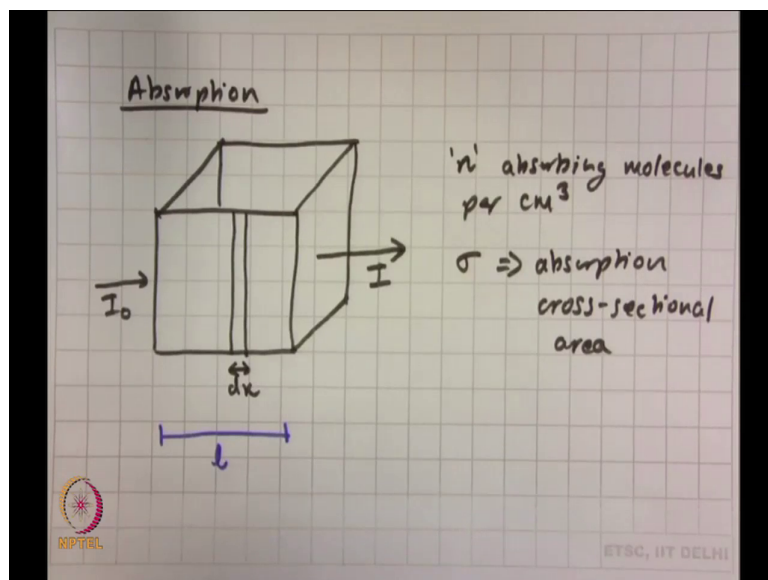 Absorption
'n' absorbing molecules
per cm³
σ => absorption
cross-sectional
area
I₀
I
dx
l
NPTEL
ETSC, IIT DELHI